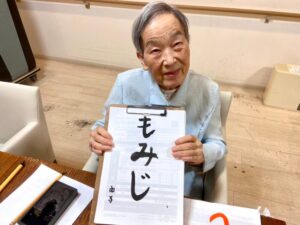 もみじ